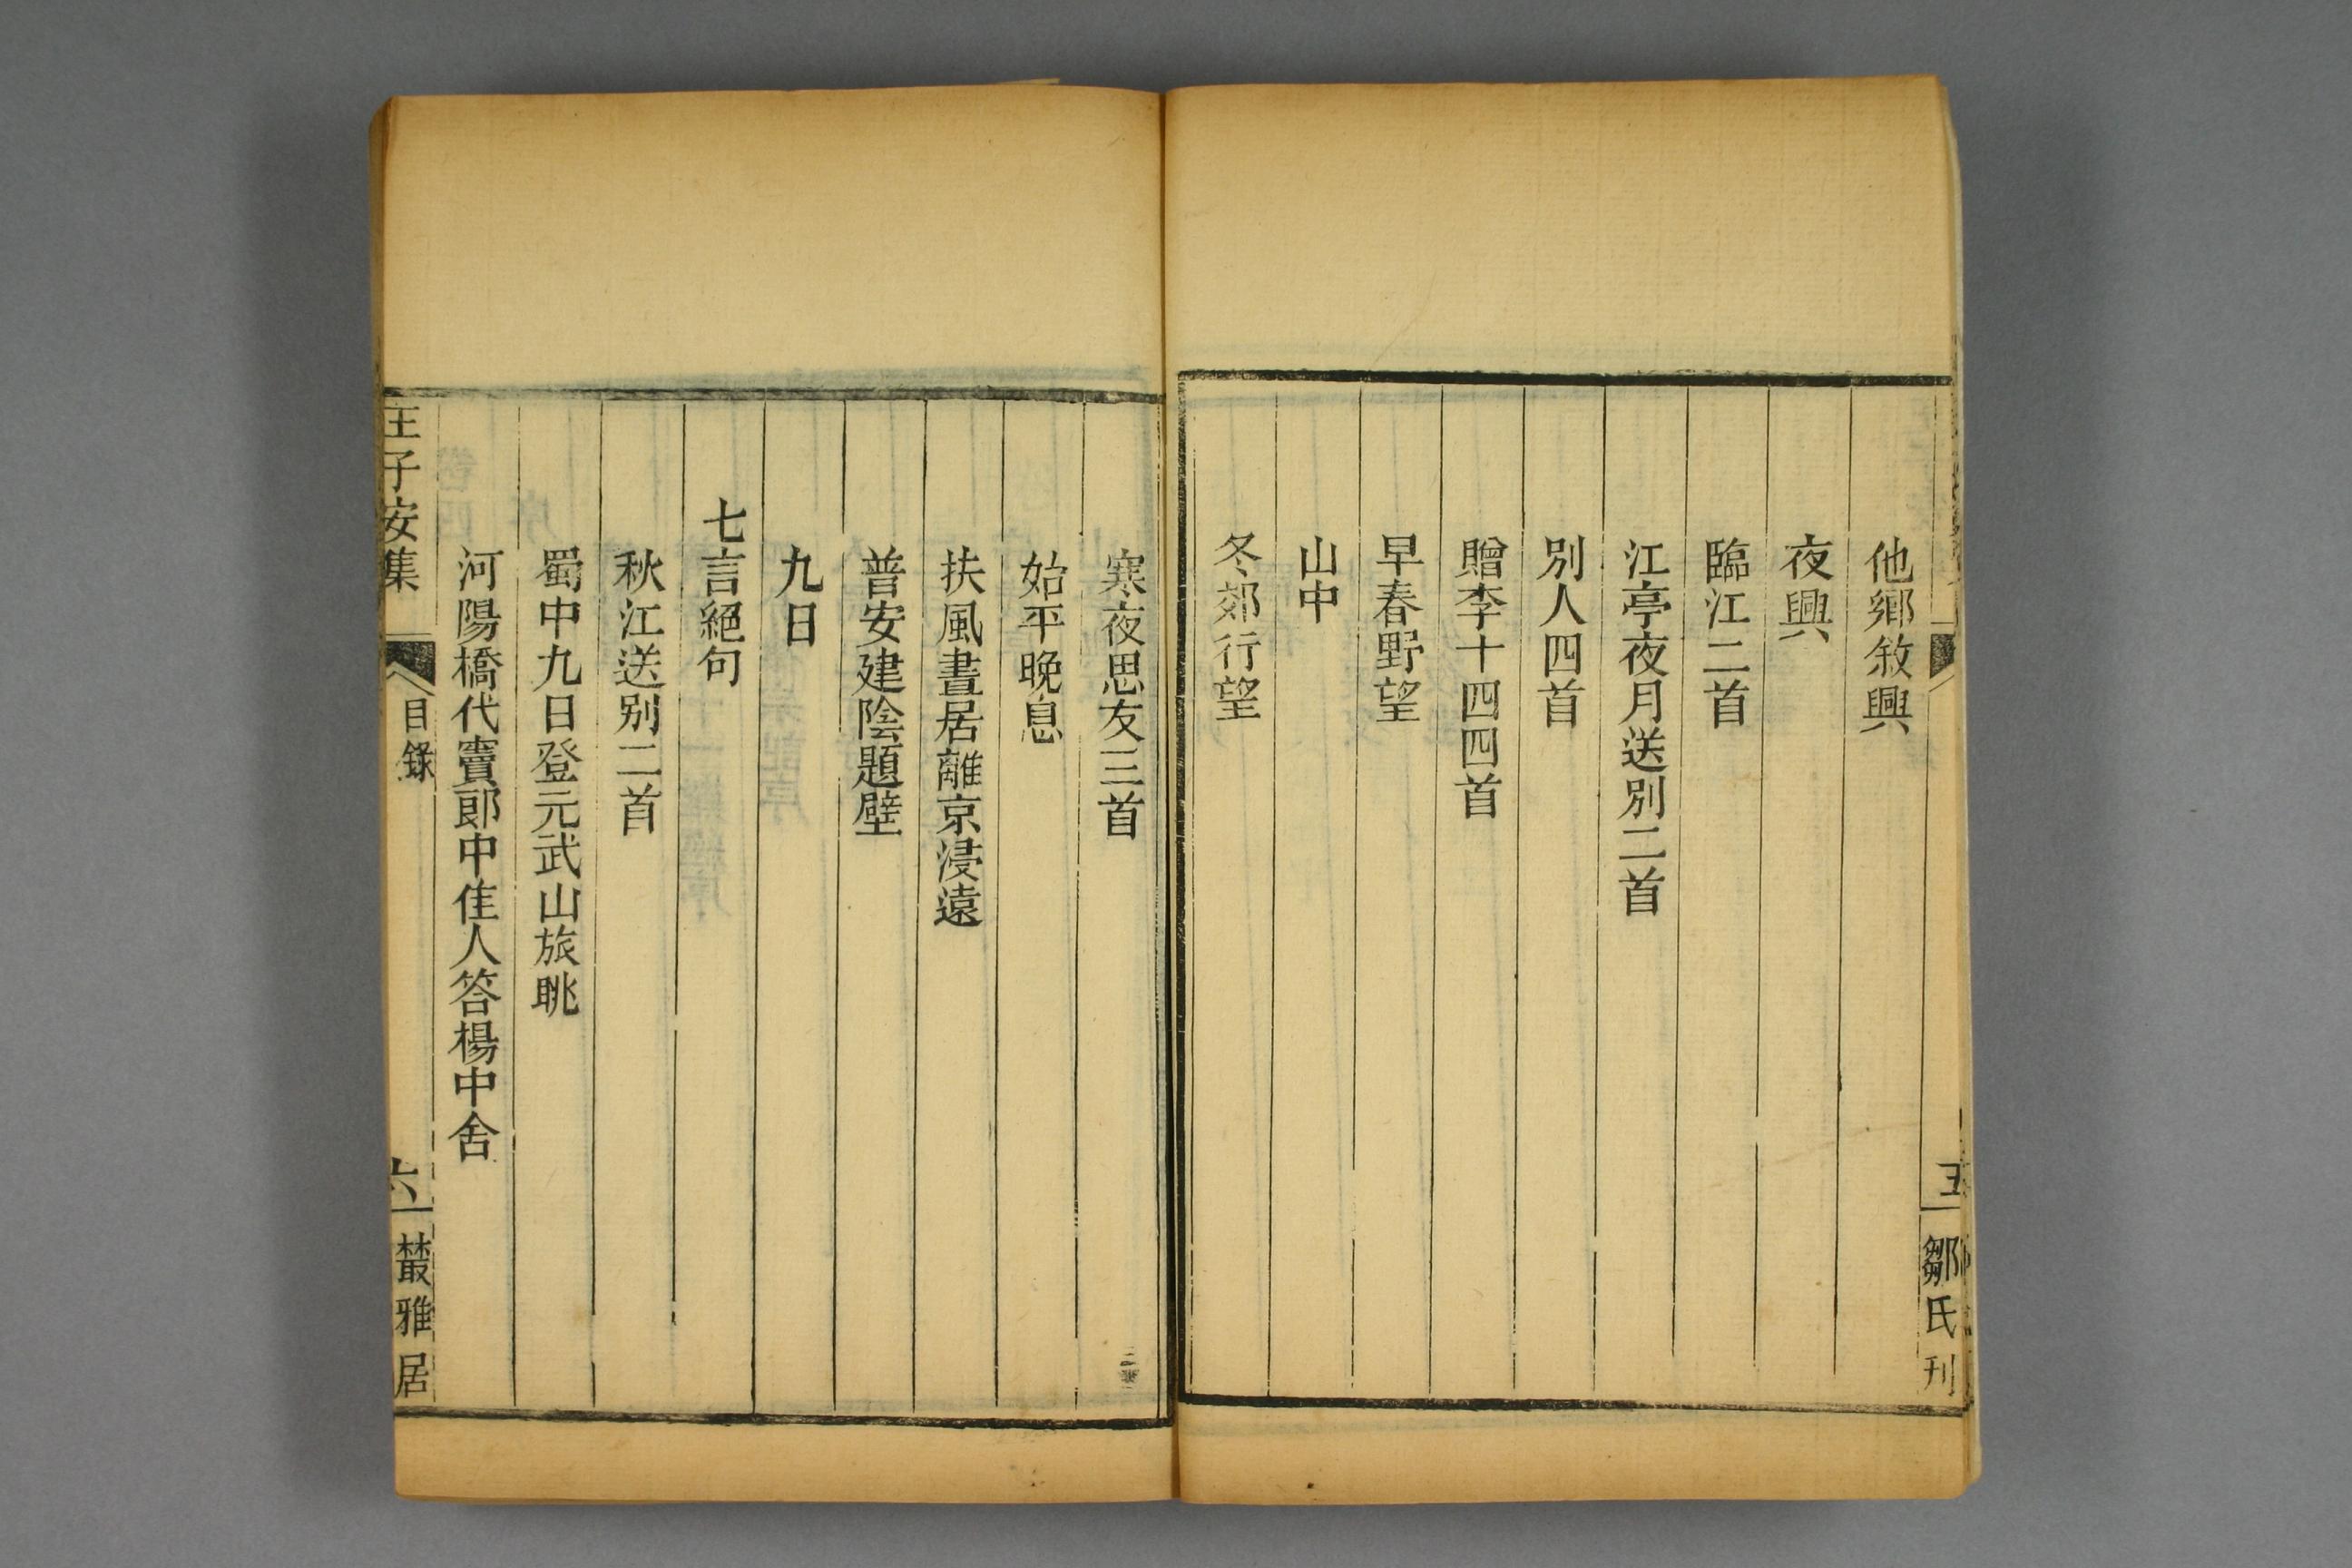 他鄉敘興
夜興
臨江二首
江亭夜月送別二首
別人四首
贈李十四四首
早春野望
山中
冬郊行望
五
鄒氏刊
寒夜思友三首
始平晚息
扶風晝居離京浸遠
普安建陰題壁
九日
七言絕句
秋江送别二首
蜀中九日登元武山旅眺
河陽橋代竇郎中佳人答楊中舍
王子安集
目錄
六
叢雅居